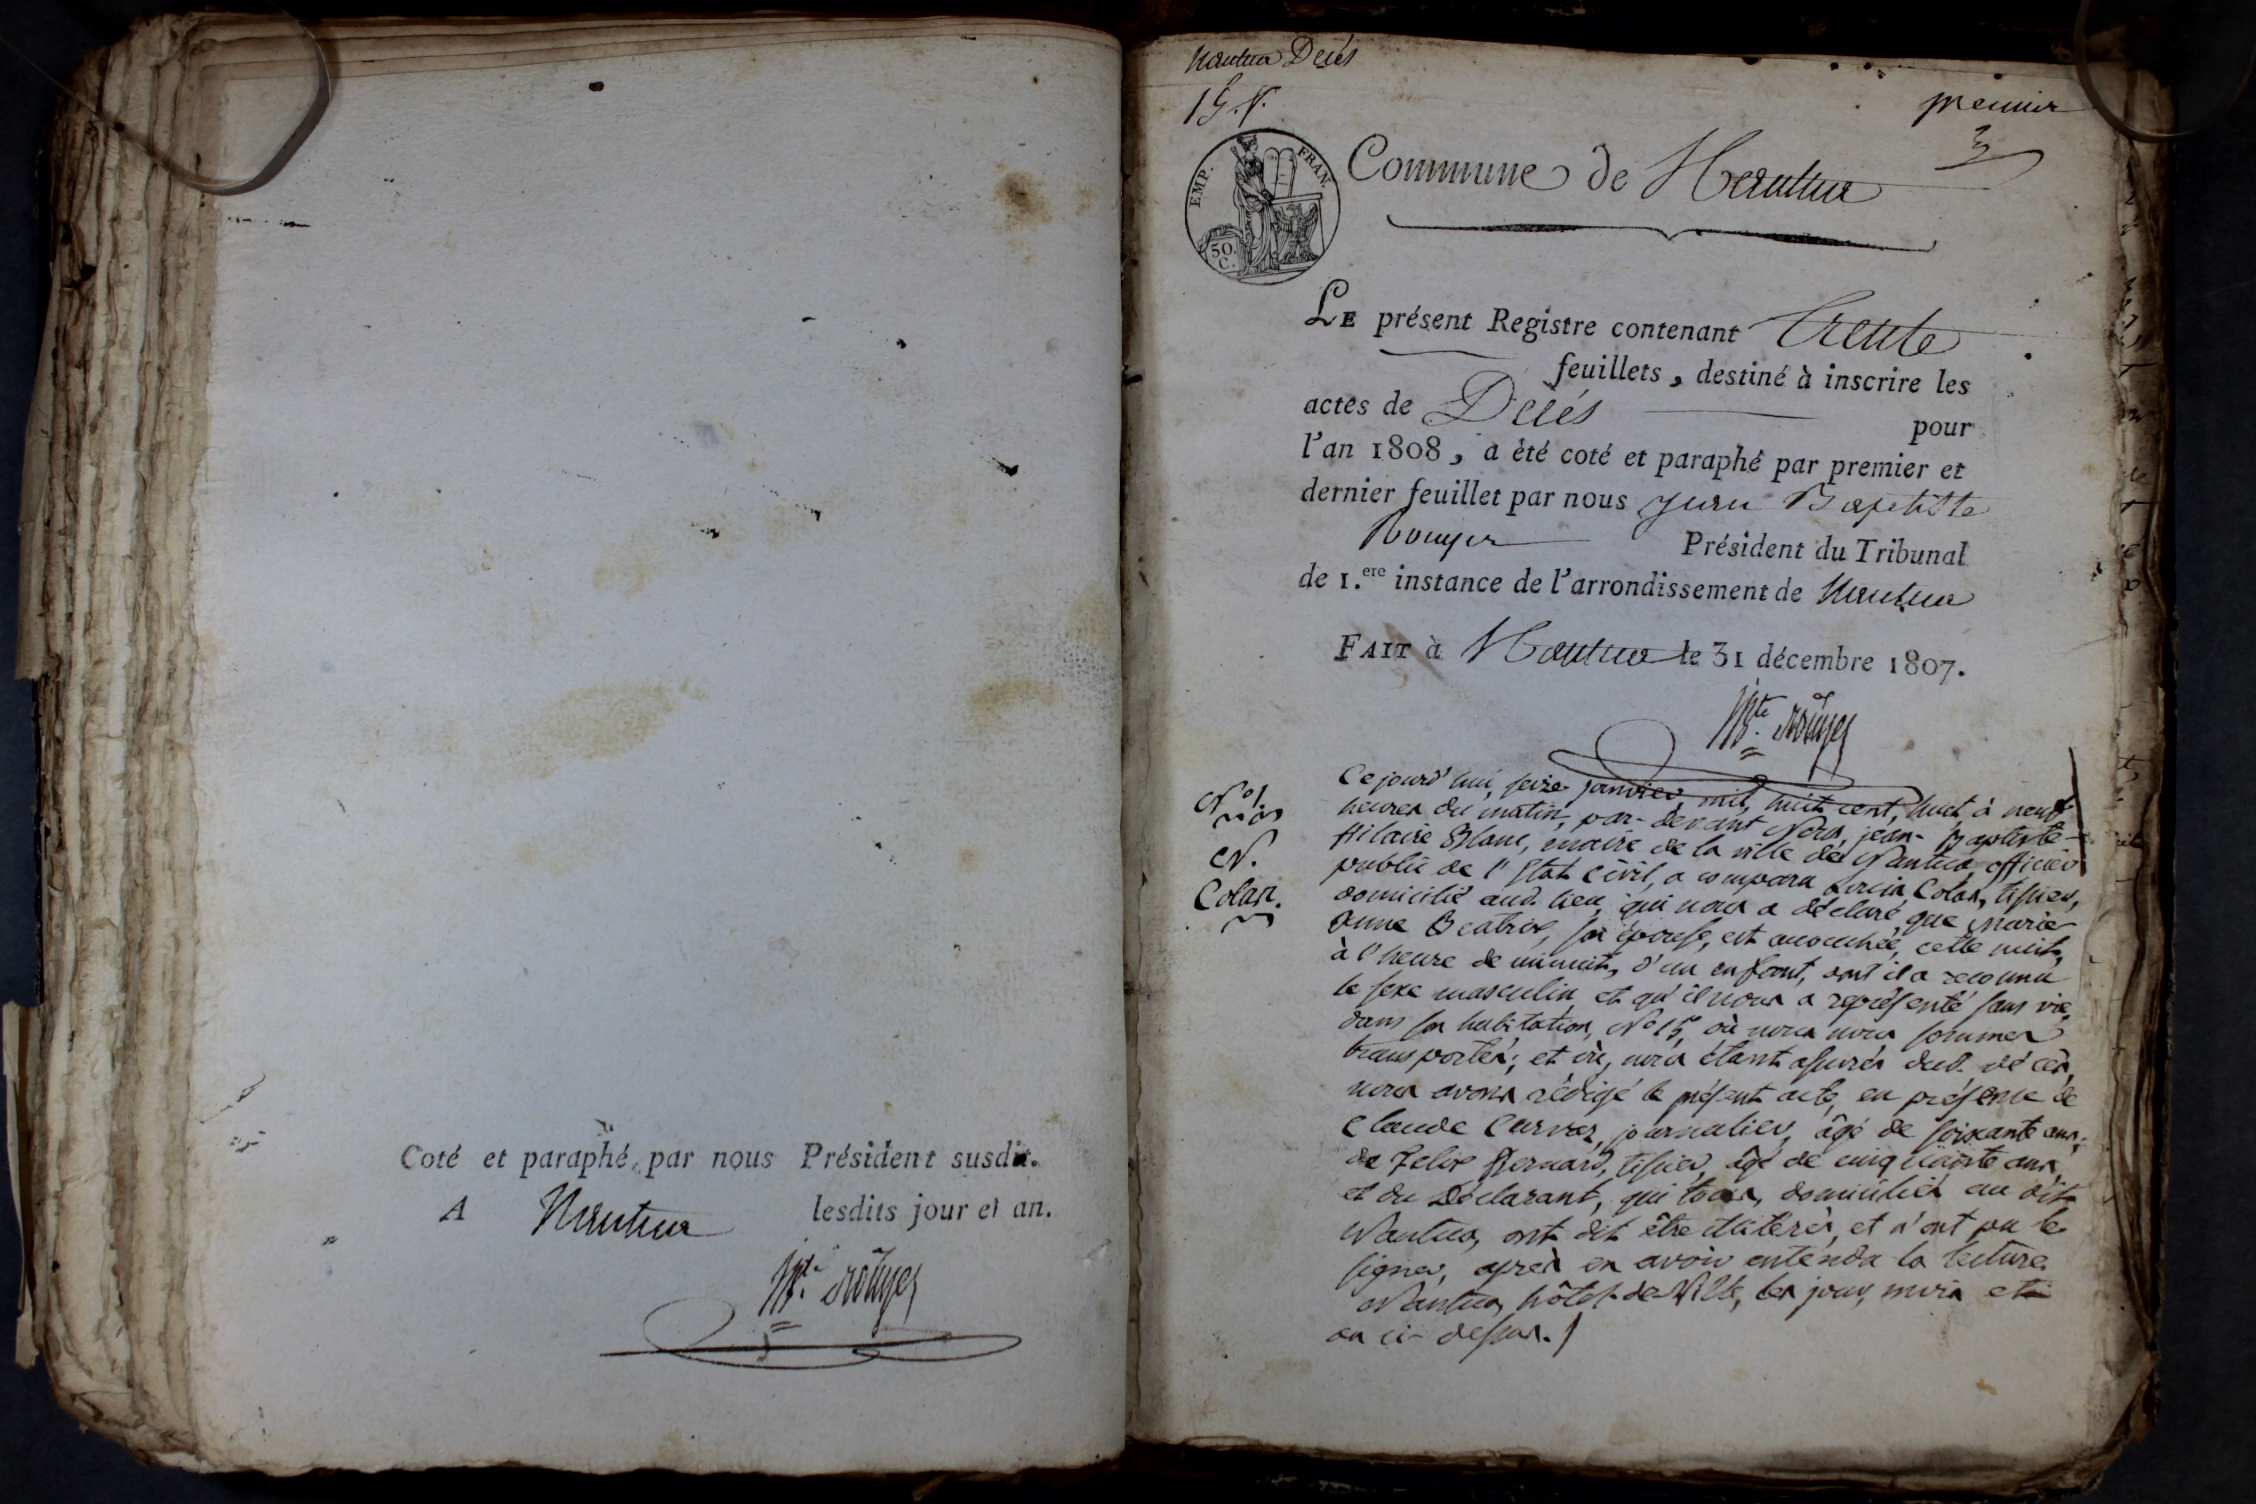 Coté et paraphé, par nous Président susdit.
A Nantua lesdits jour et an.
Bte. Rouyer
Nantua Décés
premier
EMP. FRAN.
50. C.
Commune de Nantua
LE présent Registre contenant Trente
feuillets, destiné à inscrire les
actes de Décés pour
l'an 1808, a été coté et paraphé par premier et
dernier feuillet par nous Jean Baptiste
Rouyer Président du Tribunal
de 1.ere instance de l'arrondissement de Nantua
FAIT à Nantua le 31 décembre 1807.
Bte. Rouyer
No 1.
N.
Colas.
Ce jourd'hui, seize janvier, mil, huit cent, huit, à neuf
heures du matin, par-devant Nous, jean-Baptiste-
Hilaire Blanc, maire de la ville de Nantua, officier
public de l'Etat Civil, a comparu Colas, tissier,
domicilié aud. lieu, qui nous a déclaré, que Marie
Anne Béatrix, son épouse, est accouchée, cette nuit,
à l'heure de minuit, d'un enfant, dont il a reconnu
le sexe masculin et qu'il nous a représenté sans vie,
dans son habitation, No 15, où nous nous sommes
transportés; et où, nous étant assurés dud. décès,
nous avons rédigé le présent acte, en présence de
Claude journalier, âgé de soixante ans,
de Felix Bernard, tissier, âgé de cinquante ans,
et du Déclarant, qui tous, domiciliés au dit
Nantua, ont dit être illitérés, et n'ont pu le
signer, après en avoir entendu la lecture.
Nantua, hôtel-de-Ville, les jour, mois et
an ci-dessus.